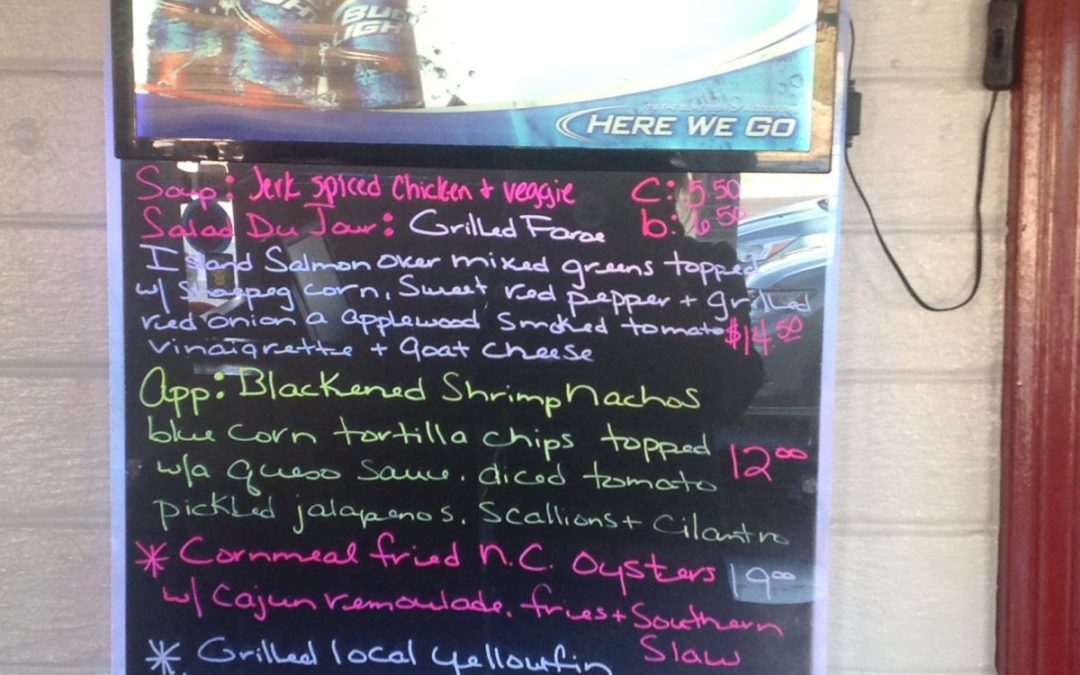 BUD LIGHT
HERE WE GO
Soup: Jerk spiced Chicken + veggie C: 5.50
Salad Du Jour: Grilled Faroe b: 6.50
Island Salmon over mixed greens topped
w/ Shoepeg corn, Sweet red pepper + grilled
red onion a applewood smoked tomato $14.50
vinaigrette + goat cheese
App: Blackened Shrimp Nachos
blue corn tortilla chips topped
w/a queso sauce, diced tomato 12.00
pickled jalapenos, scallions + cilantro
* Cornmeal fried N.C. Oysters 19.00
w/ Cajun remoulade, fries + Southern
Slaw
* Grilled local yellowfin